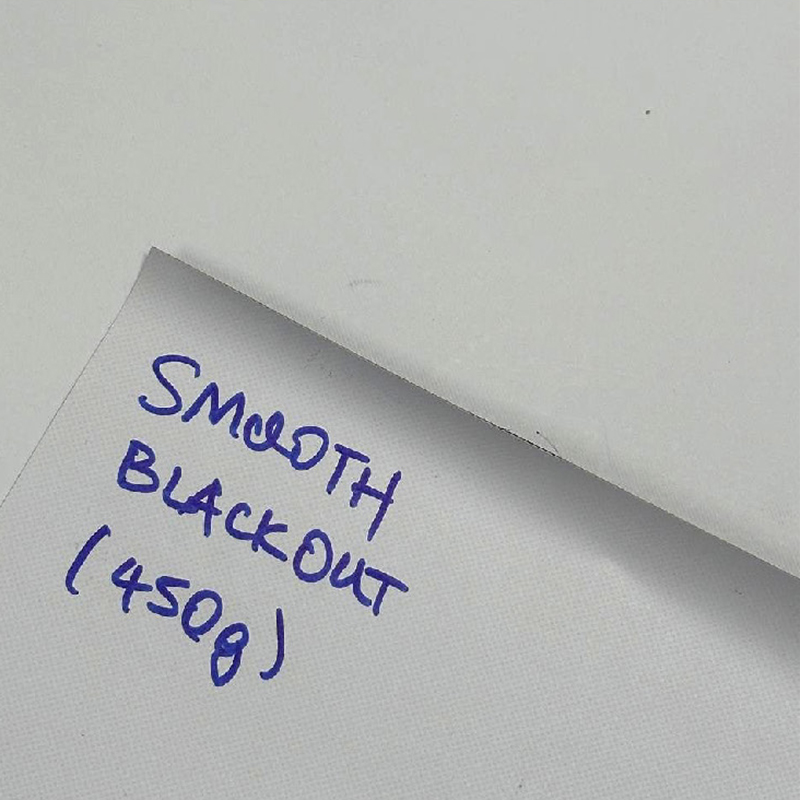 SMOOTH
BLACKOUT
(450g)